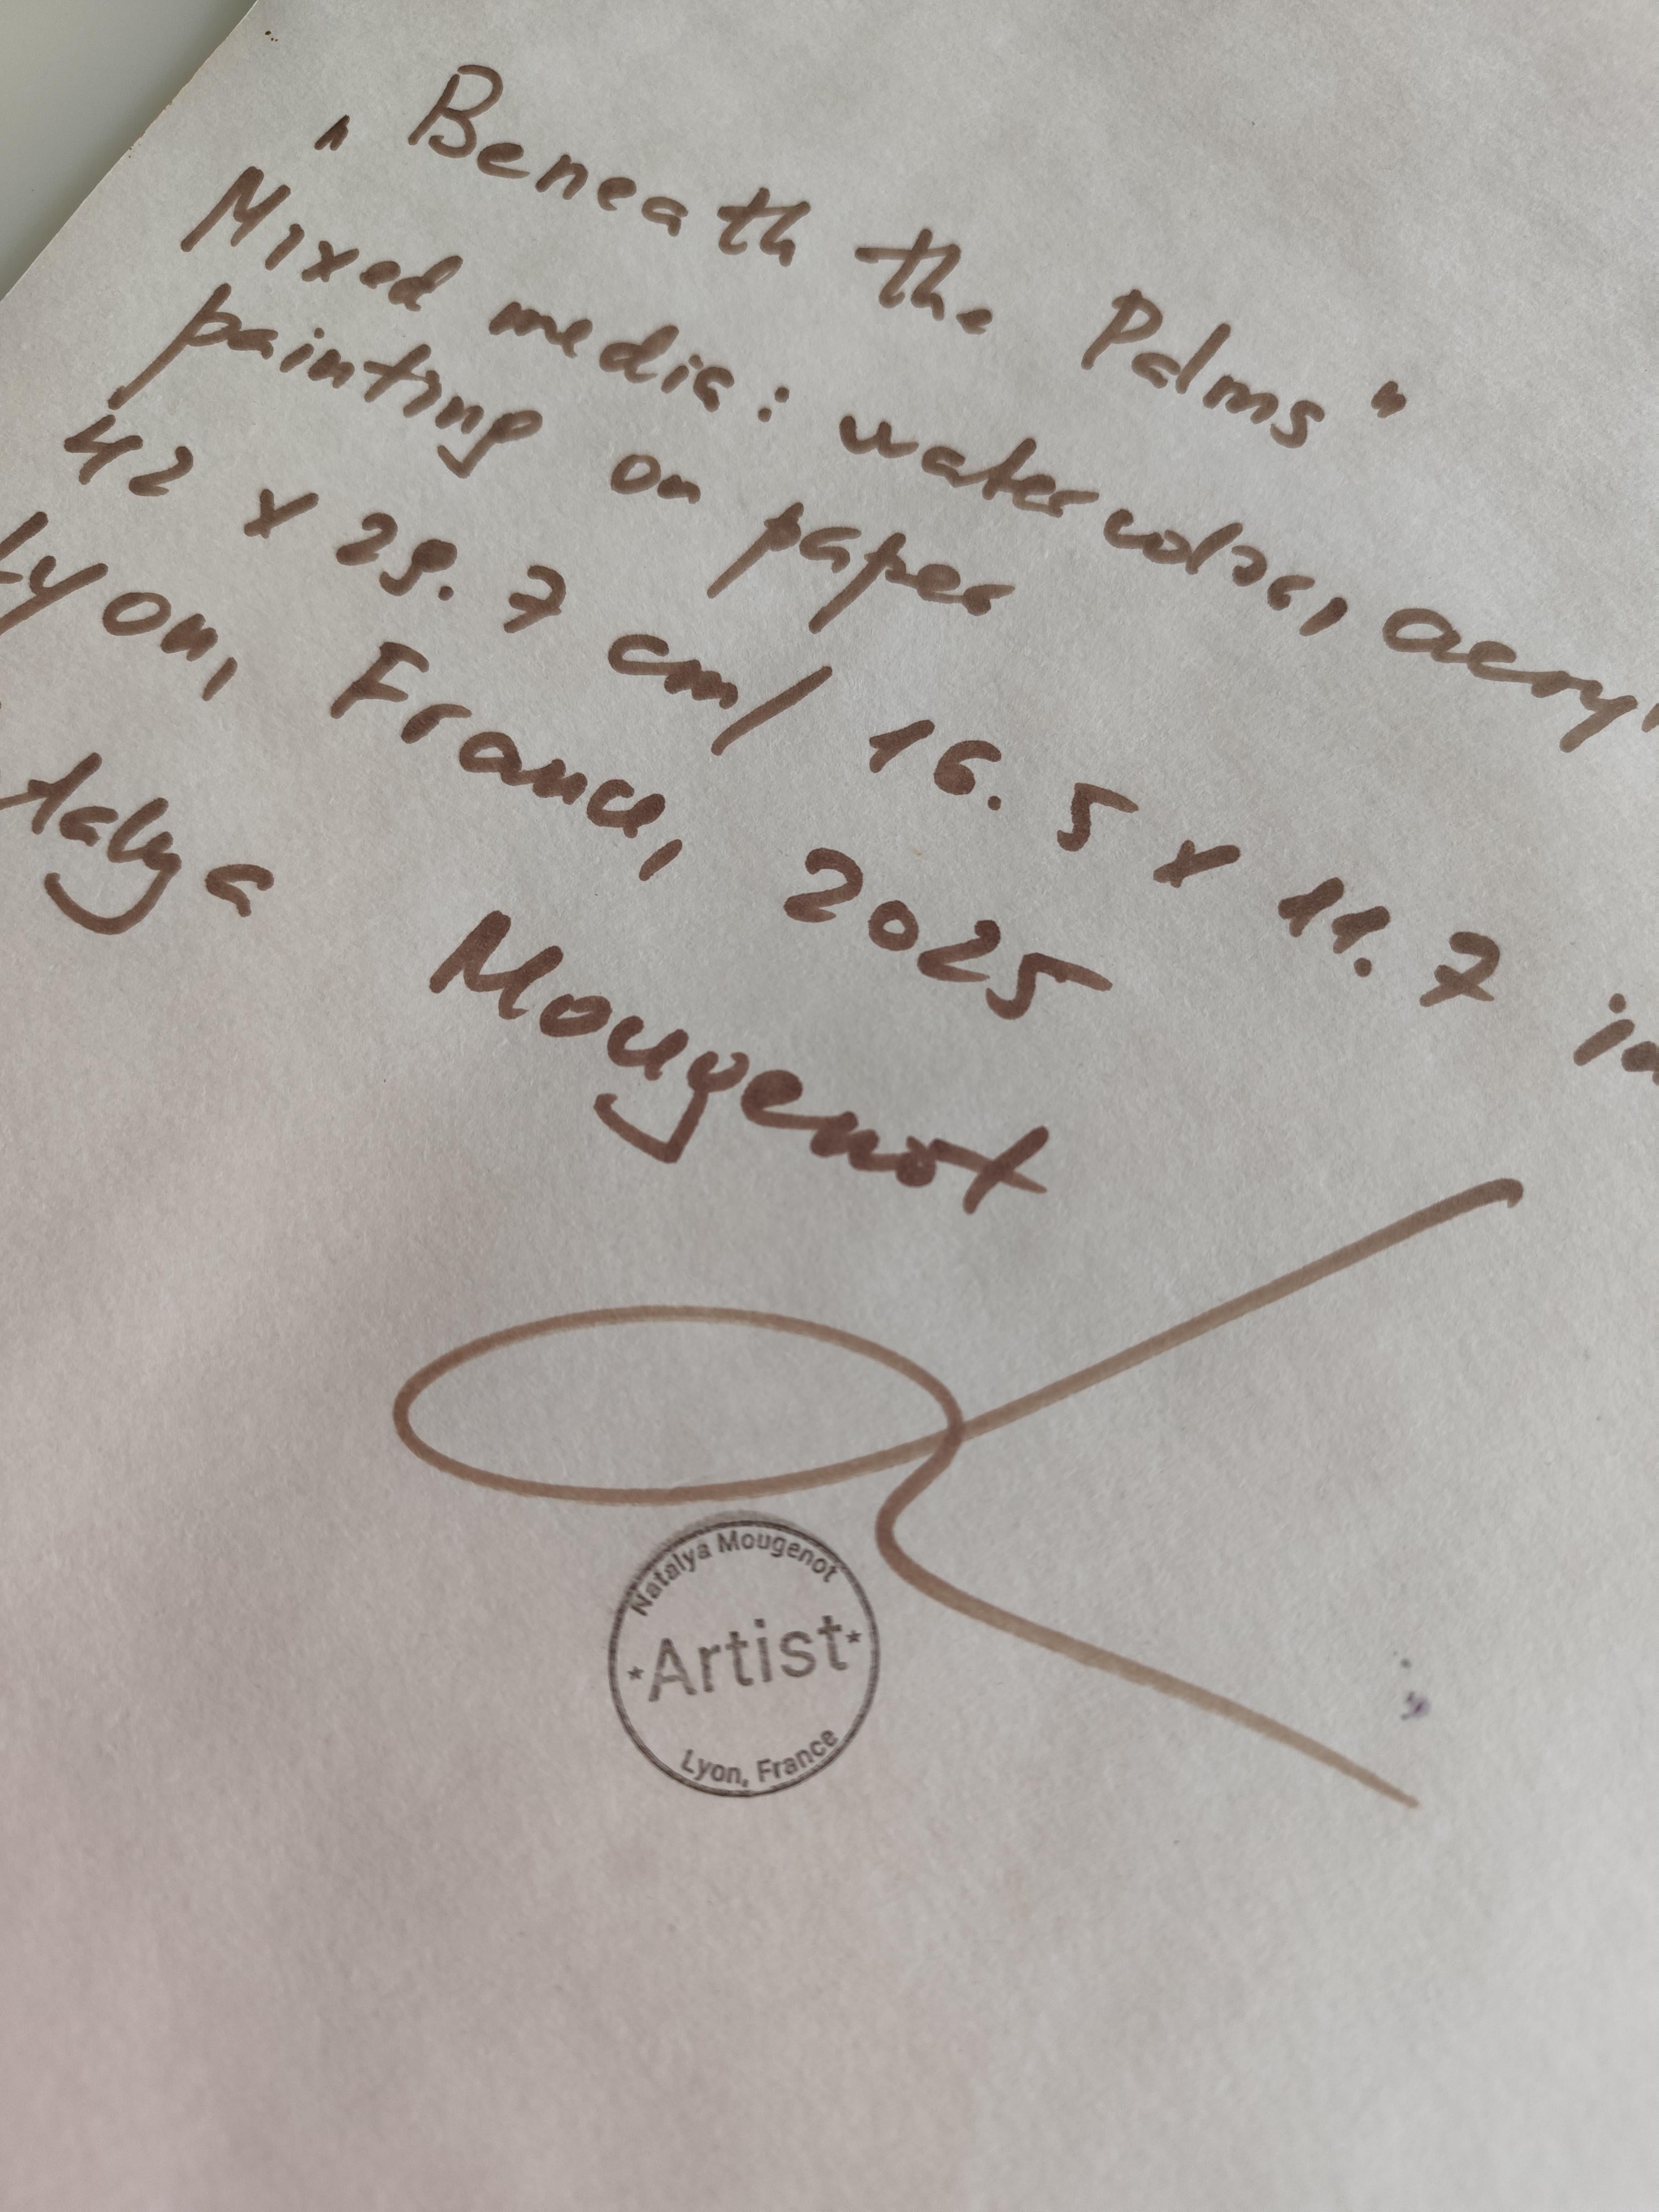 "Beneath the Palms"
Mixed media: watercolor, acry
painting on paper
42 x 29.7 cm/ 16.5 x 11.7 in
Lyon, France, 2025
talya Mougenot
Natalya Mougenot
Artist
Lyon, France